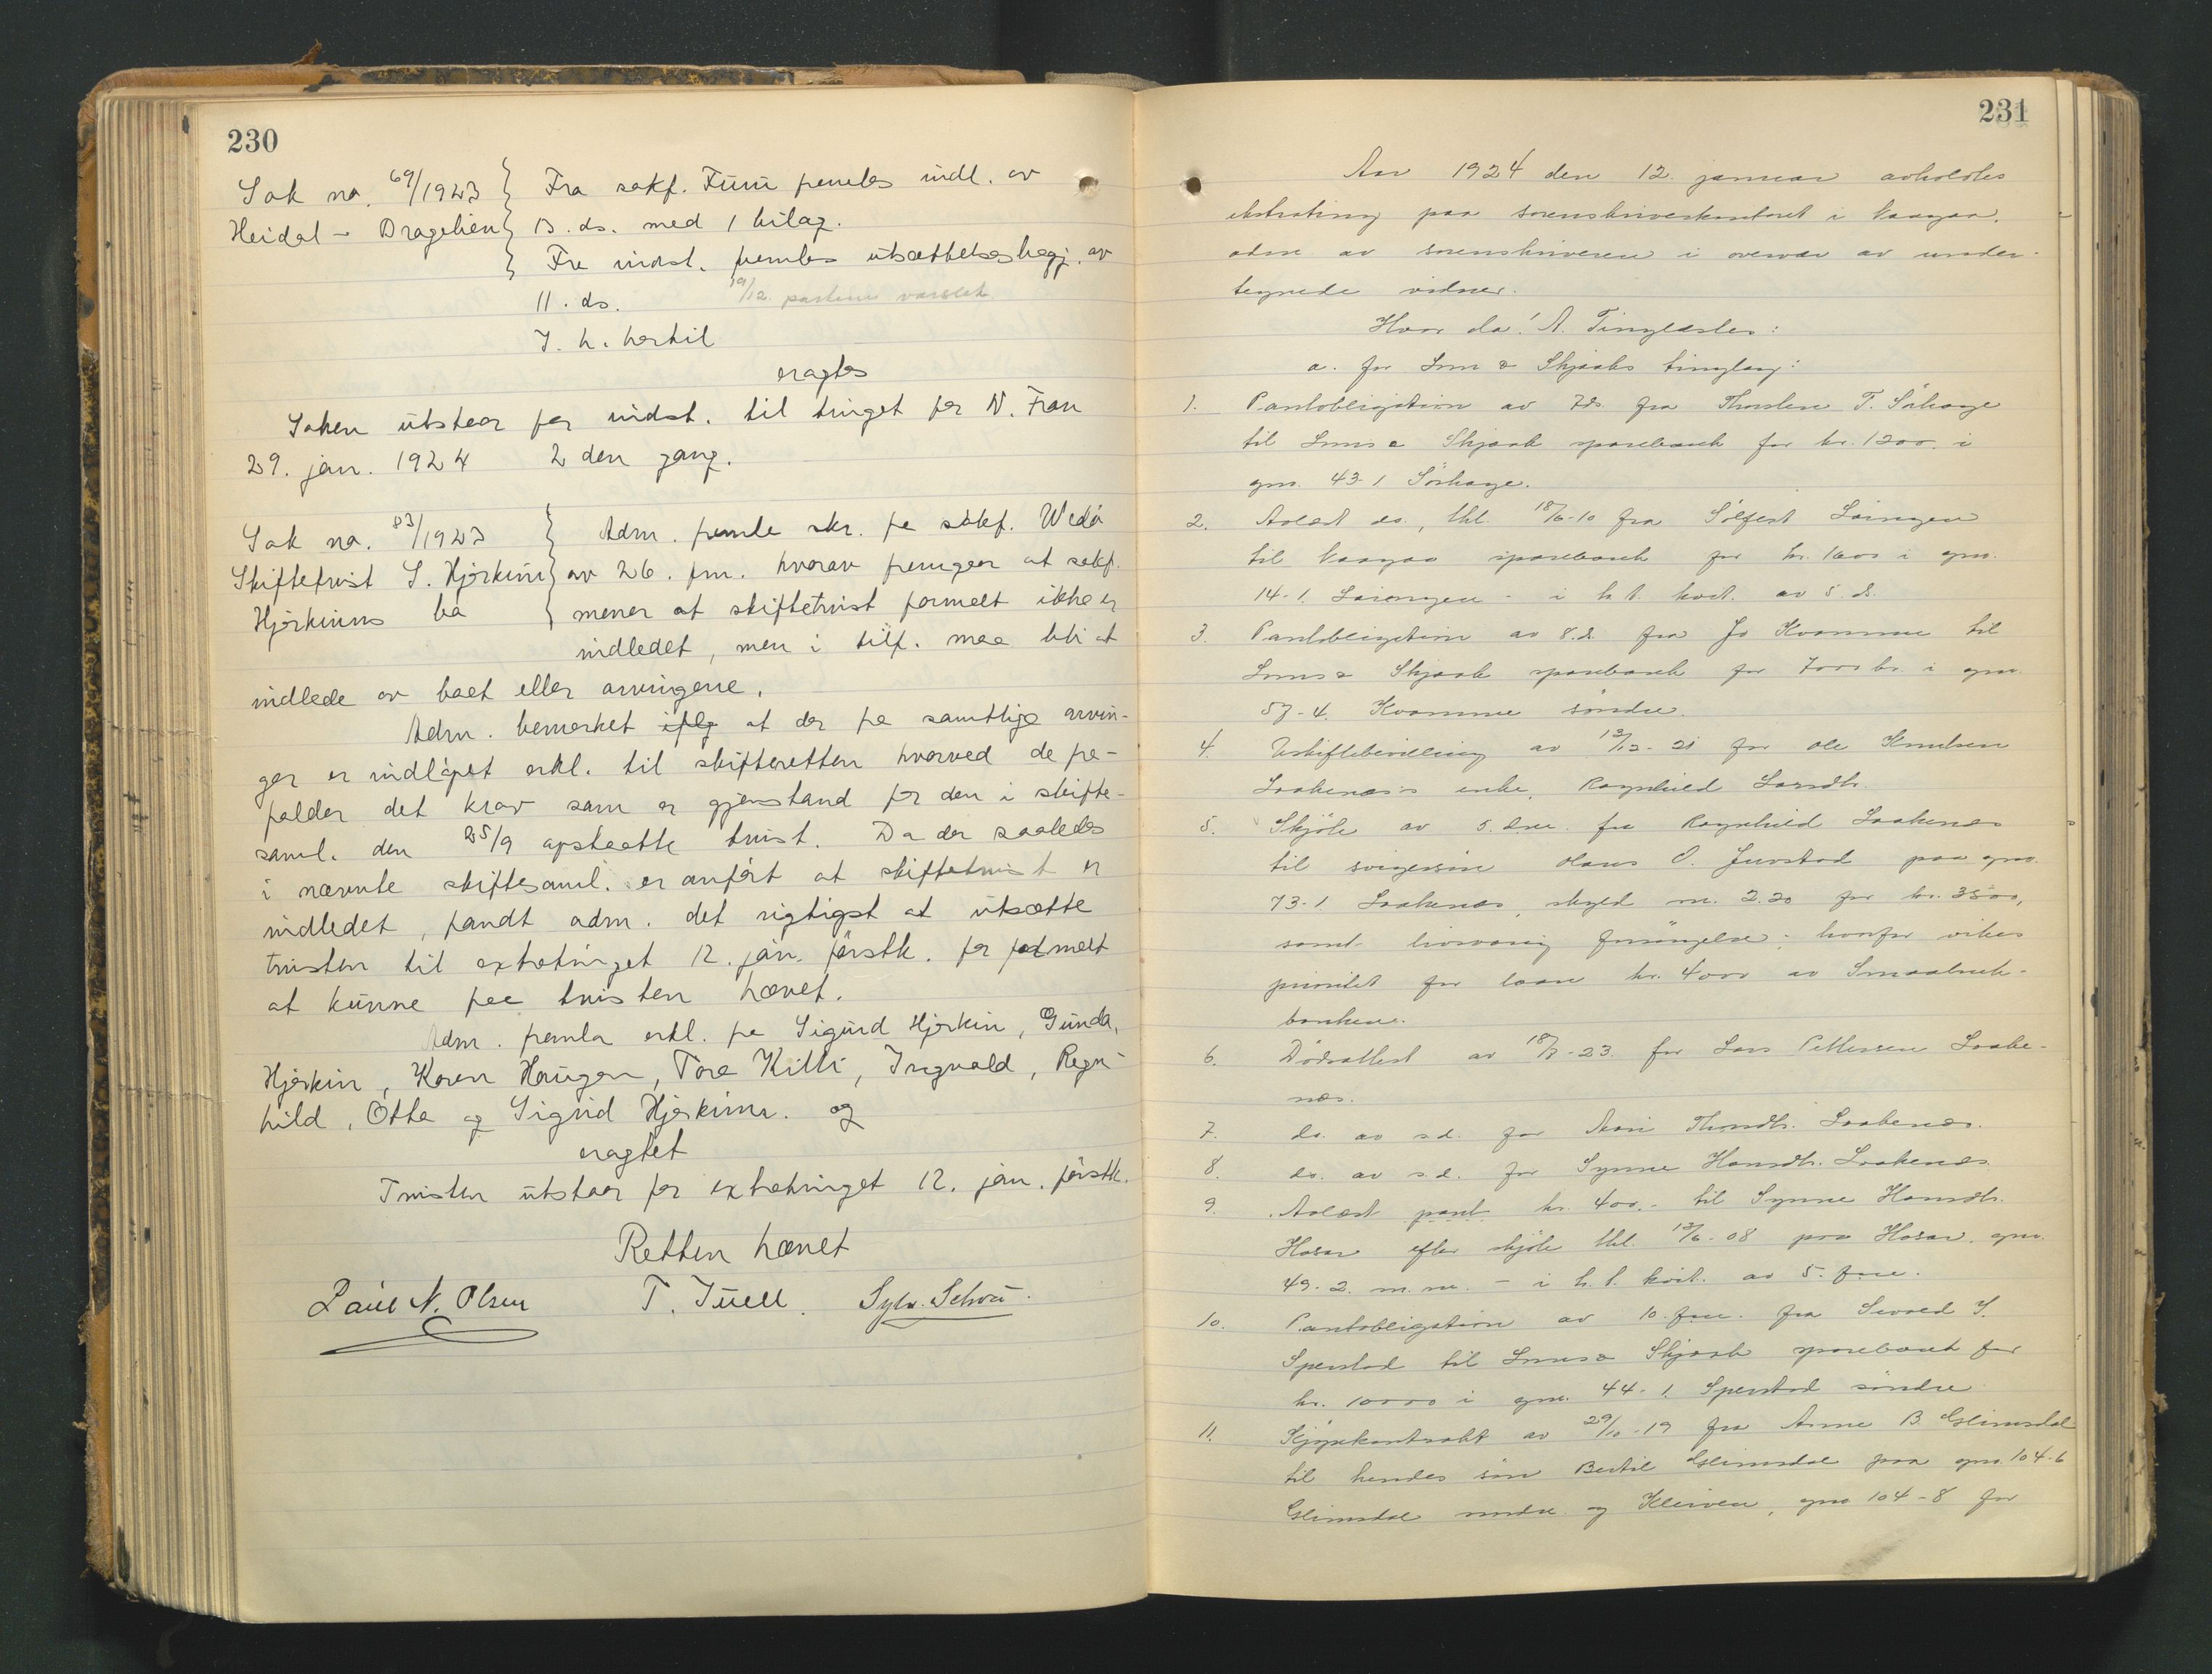 230
Sak no. 69/1923 } Fra sakf. Furu fremles indl. av
Heidal - Dragelien } 13. ds. med 1 bilag.
} Fra indst. fremles utsættelsesbegj. av
11. ds. 19/12. partene varslet
I. h. hertil
eragtes
Saken utstaar for indst. til tinget for N. Fron
29. jan. 1924 2 den gang.
Sak no. 83/1923 } Adm. fremla skr. fra sakf.
Skiftetvist S. Hjerkinn } av 26. fm. hvorav fremgaar at sakf.
Hjerkinns bo } mener at skiftetvist formelt ikke er
indledet, men i tilf. maa bli at
indlede av boet eller arvingene.
Adm. bemerket at der fra samtlige arvin-
ger er indløpet erkl. til skifteretten hvorved de fra-
falder det krav som er gjenstand for den i skifte-
saml. den 25/9 opstaatte tvist. Da der saaledes
i nævnte skiftesaml. er anført at skiftetvist er
indledet, fandt adm. det rigtigst at utsætte
tvisten til extratinget 12. jan. førstk. for formelt
at kunne faa tvisten hævet.
Adm. fremla erkl. fra Sigurd Hjerkin, Gunda
Hjerkin, Karen Haugen, Tora Killi, Ingvald, Ragn-
hild, Otta og Sigrid Hjerkinn. og
eragtet
Tvisten utstaar for extratinget 12. jan. førstk.
Retten hævet
Paul N. Olsen T. Juell. Sylv. Schou.
231
Aar 1924 den 12. januar avholdtes
ekstrating paa sorenskriverkontoret i Vaagaa,
adm. av sorenskriveren i overvær av under-
tegnede vidner.
Hvor da! A. Tinglæstes:
a. for Lom & Skjaaks tinglag:
1. Pantobligation av 7ds. fra Thorstein T. Sørhage
til Lom & Skjaak sparebank for kr. 1200 i
gno. 43-1 Sørhage.
2. Avlæst do., thl. 18/6-10 fra Sølfest
til Vaagaa sparebank for kr. 1600 i gno.
14-1. - i h. t. kvit. av 5. ds.
3. Pantobligation av 8. ds. fra Jo Kvamme til
Lom & Skjaak sparebank for 7000 kr. i gno.
57-4. Kvamme søndre.
4. Uskiftebevilling av 13/12-21 for Ole Knudsen
Laakenæs's enke, Ragnhild Larsdtr.
5. Skjøte av 5. dm. fra Ragnhild Laakenæs
til svigersøn Hans O. Juvstad paa gno.
73-1 Laakenæs, skyld m. 2.20 for kr. 3500,
samt livsvarig forsørgelse; hvorfor vikes
prioritet for laan kr. 4000 av Smaabruk-
banken.
6. Dødsattest av 18/7-23 for Lars Pettersen Laake-
næs.
7. do. av s.d. for Mari Thordtr. Laakenæs.
8. do. av s.d. for Synne Hansdtr. Laakenæs
9. Avlæst pant kr. 400.- til Synne Hansdtr.
Hosar efter skjøte thl. 13/6-08 paa Hosar, gno.
49-2. m.m. - i h. t. kvit. av 5. fm.
10. Pantobligation av 10. fm. fra Sivald S.
Sperstad til Lom & Skjaak sparebank for
kr. 10000 i gno. 44-1. Sperstad søndre
11. Kjøpekontrakt av 29/10-19 fra Anne B. Glimsdal
til hendes søn Bertil Glimsdal paa gno. 104-6
Glimsdal nordre og Kleiven, gno 104-8 for